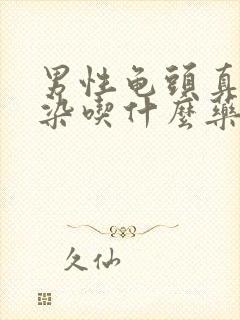 男性龟頭真
染喫什麽藥
久仙